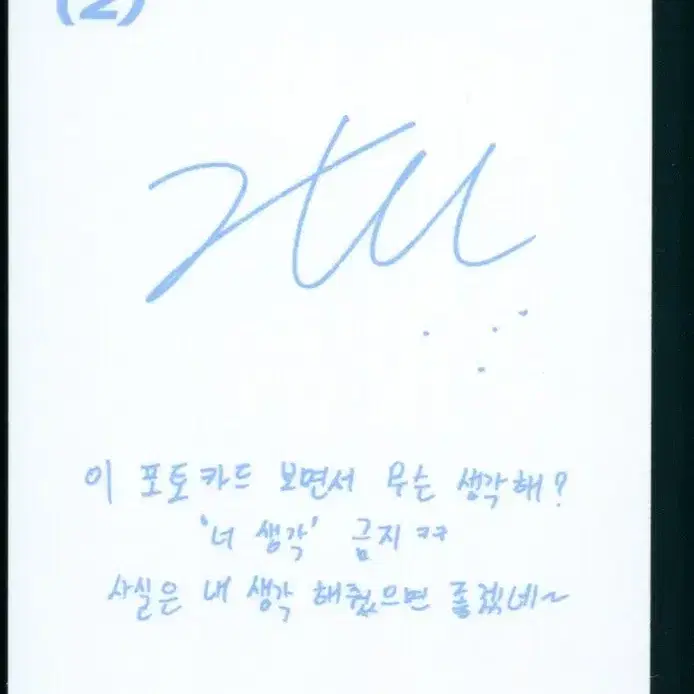 (2)
이 포토카드 보면서 무슨 생각해?
'너 생각' 금지 ㅋㅋ
사실은 내 생각 해줬으면 좋겠네~